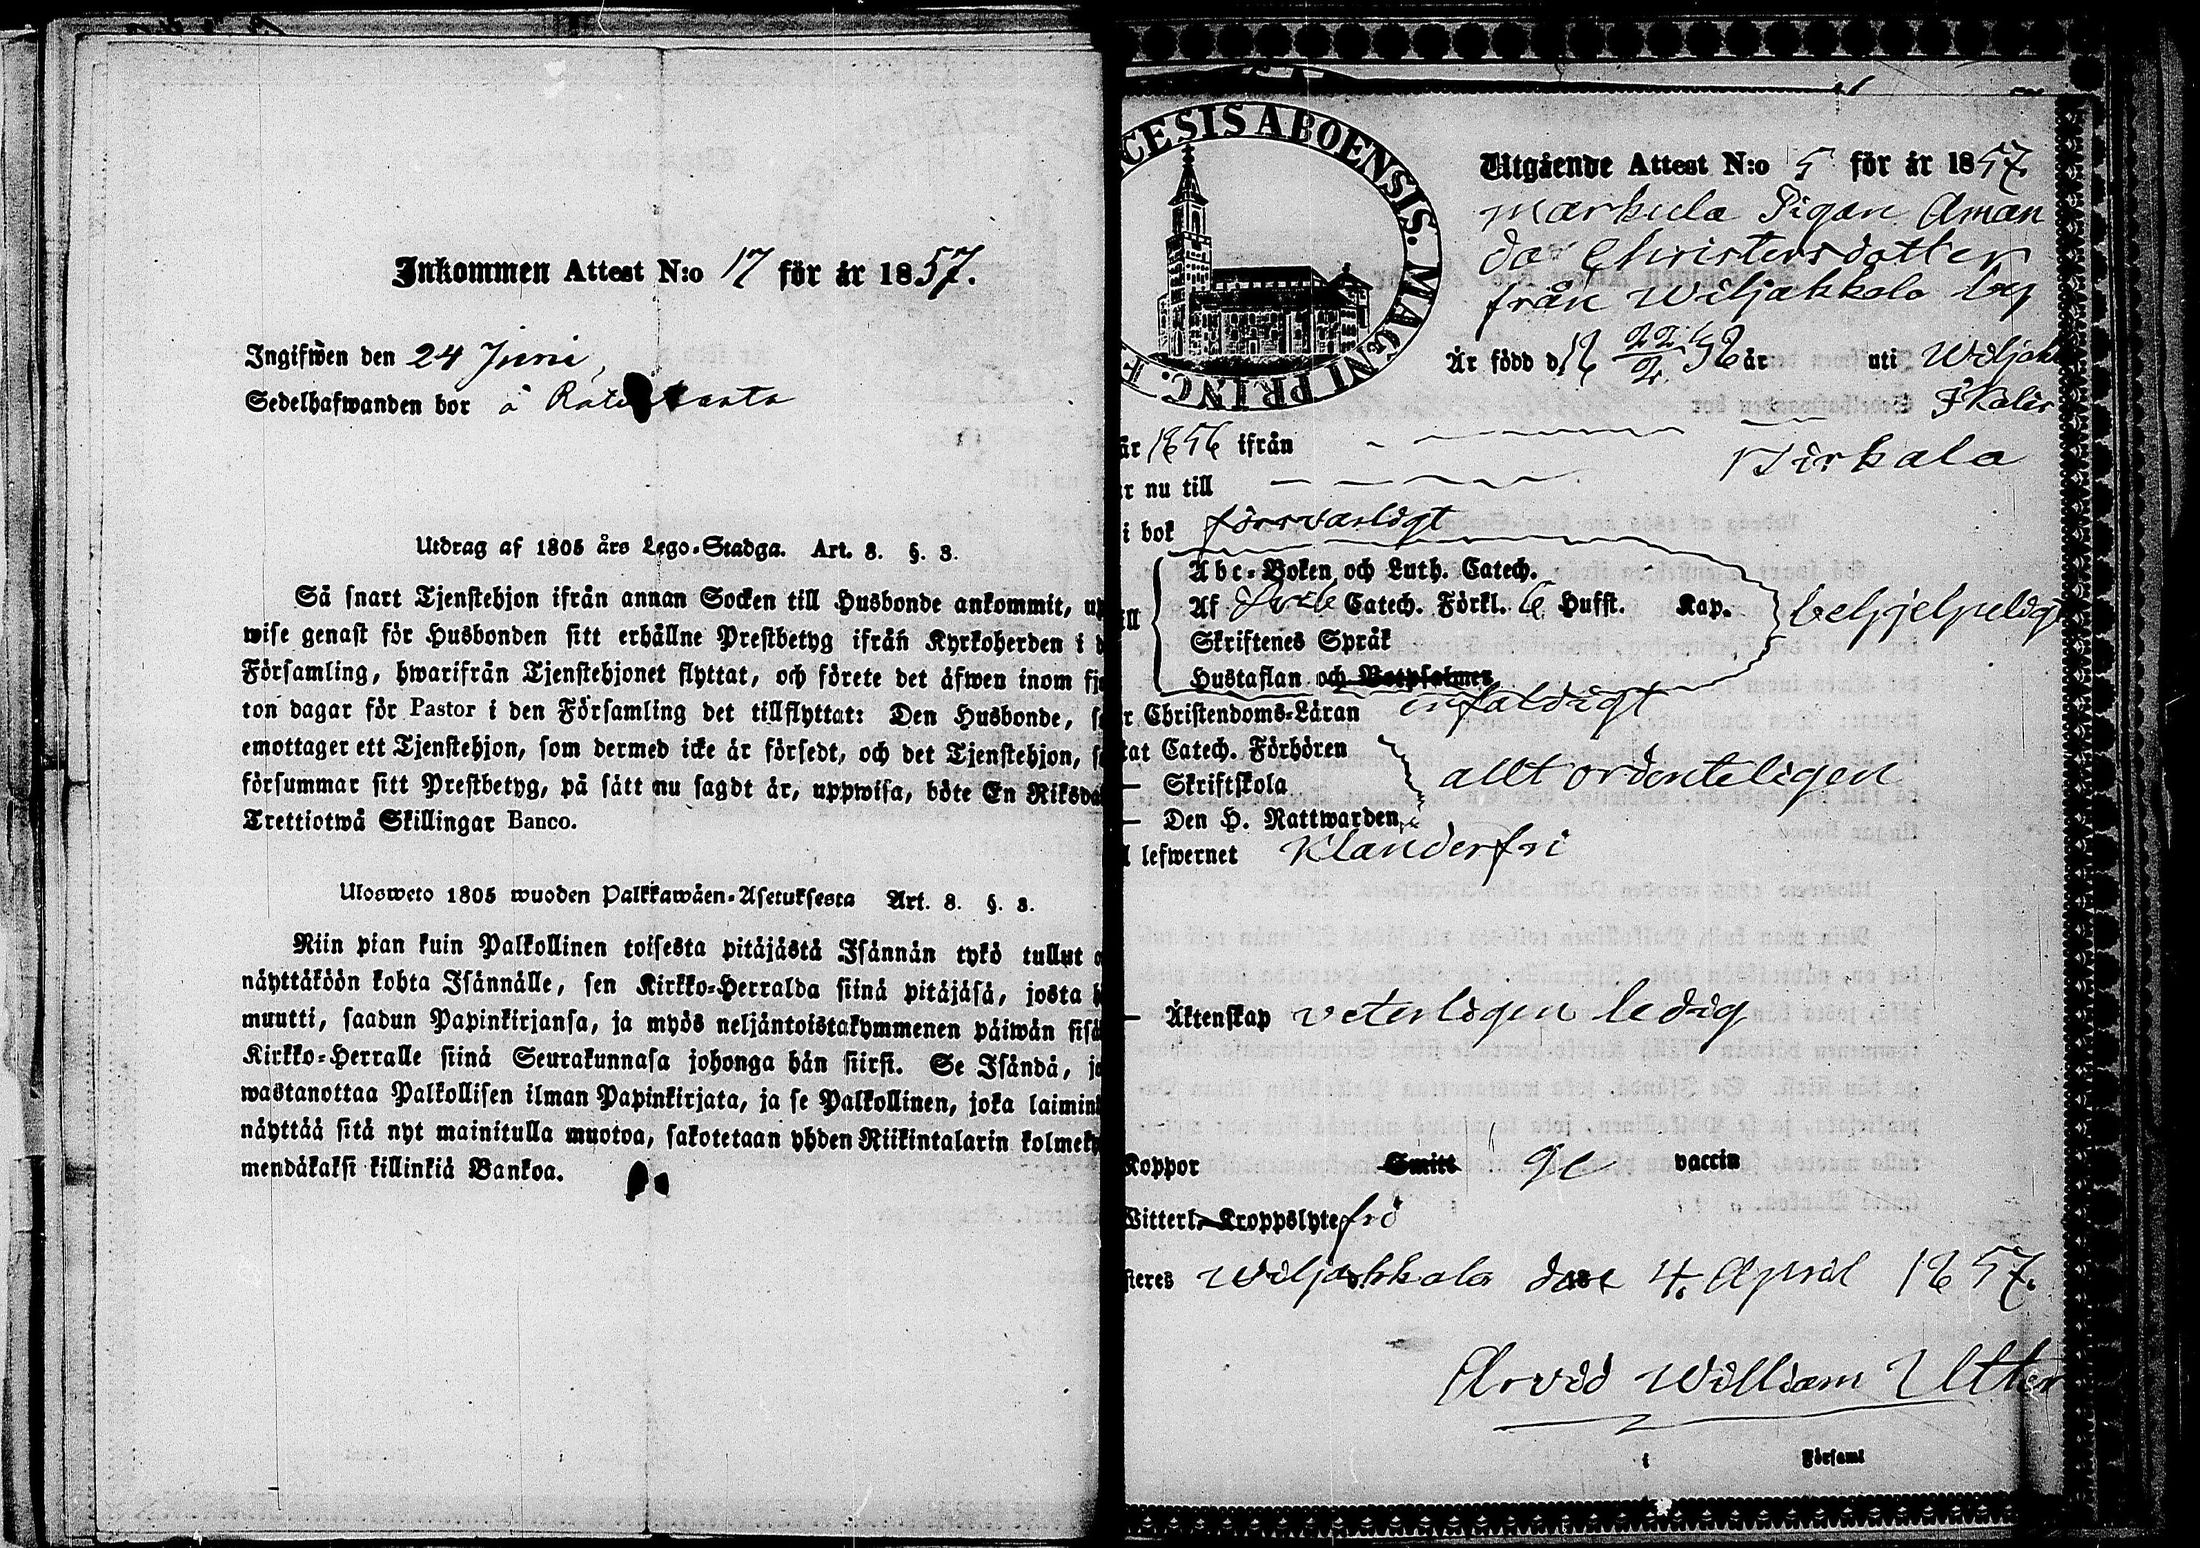 Inkommen Attest N:o 17 för år 1857.
Ingifwen den 24 Juni
Sedelhafwanden bor å
Utdrag af 1805 års Lego-Stadga. Art. 8. §. 3.
Så snart Tjenstehjon ifrån annan Socken till Husbonde ankommit, up
wise genast för Husbonden sitt erhållne Prestbetyg ifrån Kyrkoherden i d
Församling, hwarifrån Tjenstehjonet flyttat, och förete det äfwen inom fjo
ton dagar för Pastor i den Församling det tillflyttat: Den Husbonde, s
emottager ett Tjenstehjon, som dermed icke är försedt, och det Tjenstehjon, s
försummar sitt Prestbetyg, på sätt nu sagdt är, uppwisa, böte En Riksda
Trettiotwå Skillingar Banco.
Ulosweto 1805 wuoden Palkkawäen-Asetuksesta Art. 8. §. 3.
Niin pian kuin Palkollinen toisesta pitäjästä Isännän tykö tullut o
näyttäköön kohta Isännälle, sen Kirkko-Herralda siinä pitäjäsä, josta h
muutti, saadun Papinkirjansa, ja myös neljäntoistakymmenen päiwän sisä
Kirkko-Herralle siinä Seurakunnasa johonga hän siirsi. Se Isändä, jo
wastanottaa Palkollisen ilman Papinkirjata, ja se Palkollinen, joka laimin
näyttää sitä nyt mainitulla muotoa, sakotetaan yhden Riikintalarin kolmeky
mendäkaksi killinkiä Bankoa.
CESIS ABOENSIS. MAGNI PRINC. F
Utgående Attest N:o 5 för år 1857.
Pigan Aman
da Christersdotter
från Wiljakkala by
Är född d 18 22/2 38 år uti Wiljak
är 1856 ifrån
Birkala
r nu till
i bok försvarligt
Abc-Boken och Luth. Catech.
ill Af Catech. Förkl. Hufst. Kap. behjelpeligt
Skriftenes Språk
Hustaflan och Botpsalmer
r Christendoms-Läran enfaldigt
tat Catech. Förhören
— Skriftskola allt ordenteligen
— Den H. Nattwarden
l lefwernet klanderfri
— Äktenskap veterligen ledig
Koppor Smitt ge vaccin
Witterl. Kroppslyte fri
steres Wiljakkala den 4. April 1857.
Arvid William Utter
i Församl